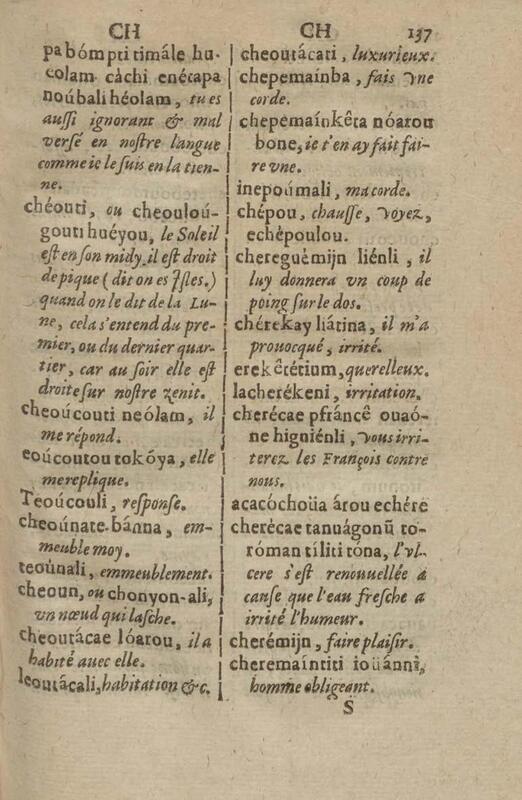 CH
CH 137
pabómpti timále hu-
colam càchi enécapa
noúbali héolam, tu es
aussi ignorant & mal
versé en nostre langue
comme ie le suis en la tien-
ne.
chéouti, ou cheouloú-
gouti huéyou, le Soleil
est en son midy, il est droit
de pique ( dit on es Isles.)
quand on le dit de la Lu-
ne, cela s'entend du pre-
mier, ou du dernier quar-
tier, car au soir elle est
droite sur nostre zenit.
cheoúcouti neólam, il
me répond.
eoúcoutou tokóya, elle
me replique.
Teoúcouli, response.
cheoúnate-bánna, em-
meuble moy.
teoúnali, emmeublement.
cheoun, ou chonyon-ali,
vn nœud qui lasche.
cheoutácae lóarou, il a
habité auec elle.
leoutácali, habitation &c.
cheoutácati, luxurieux.
chepemaínba, fais vne
corde.
chepemaínkêta nóarou
bone, ie t'en ay fait fai-
re vne.
inepoúmali, ma corde.
chépou, chausse, voyez,
echépoulou.
chereguémijn liénli, il
luy donnera vn coup de
poing sur le dos.
chérekay liátina, il m'a
prouocqué, irrité.
erekêtétium, querelleux.
lacherékeni, irritation.
cherécae pfráncê ouaó-
ne higniénli, vous irri-
terez les François contre
nous.
acacóchoüa árou echére
cherécae tanuágonũ to-
róman tíliti tóna, l'vl-
cere s'est renouuellée a
cause que l'eau fresche a
irrité l'humeur.
cherémijn, faire plaisir.
cheremaíntiti ioüánni,
homme obligeant.
S